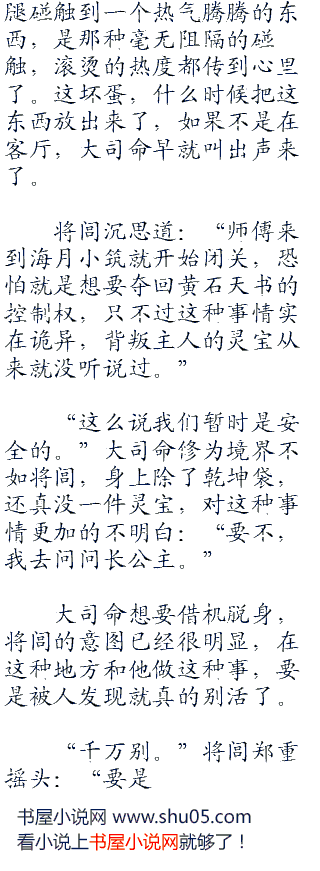 腿碰触到一个热气腾腾的东
西，是那种毫无阻隔的碰
触，滚烫的热度都传到心里
了。这坏蛋，什么时候把这
东西放出来了，如果不是在
客厅，大司命早就叫出声来
了。
将闾沉思道：“师傅来
到海月小筑就开始闭关，恐
怕就是想要夺回黄石天书的
控制权，只不过这种事情实
在诡异，背叛主人的灵宝从
来就没听说过。”
“这么说我们暂时是安
全的。”大司命修为境界不
如将闾，身上除了乾坤袋，
还真没一件灵宝，对这种事
情更加的不明白：“要不，
我去问问长公主。”
大司命想要借机脱身，
将闾的意图已经很明显，在
这种地方和他做这种事，要
是被人发现就真的别活了。
“千万别。”将闾郑重
摇头：“要是
书屋小说网 www.shu05.com
看小说上书屋小说网就够了！